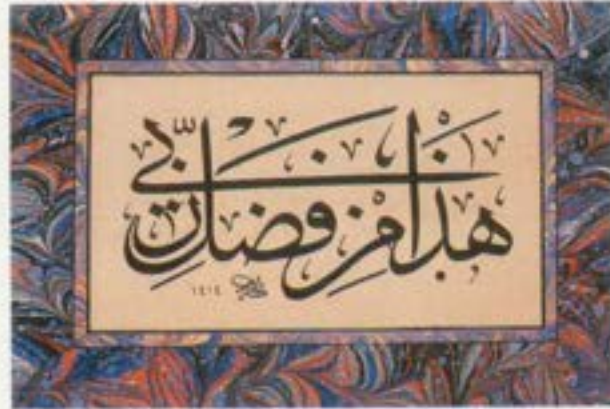 هذا من فضل ربي
١٤١٤